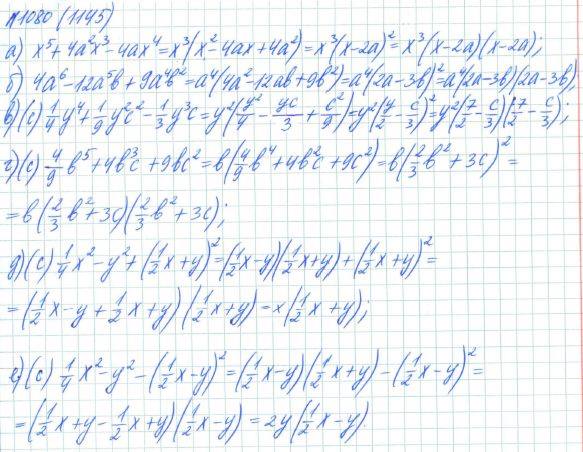 N1080 (1145)
а) x⁵+4a²x³-4ax⁴=x³(x²-4ax+4a²)=x³(x-2a)²=x³(x-2a)(x-2a);
б) 4a⁶-12a⁵b+9a⁴b²=a⁴(4a²-12ab+9b²)=a⁴(2a-3b)²=a⁴(2a-3b)(2a-3b);
в)(с) 1/4 y⁴+1/9 y²c²-1/3 y³c=y²(y²/4-yc/3+c²/9)=y²(y/2-c/3)²=y²(y/2-c/3)(y/2-c/3);
г)(с) 4/9 b⁵+4b³c+9bc²=b(4/9 b⁴+4b²c+9c²)=b(2/3 b²+3c)²=
=b(2/3 b²+3c)(2/3 b²+3c);
д)(с) 1/4 x²-y²+(1/2 x+y)²=(1/2 x-y)(1/2 x+y)+(1/2 x+y)²=
=(1/2 x-y+1/2 x+y)(1/2 x+y)=x(1/2 x+y);
е)(с) 1/4 x²-y²-(1/2 x-y)²=(1/2 x-y)(1/2 x+y)-(1/2 x-y)²=
=(1/2 x+y-1/2 x+y)(1/2 x-y)=2y(1/2 x-y).